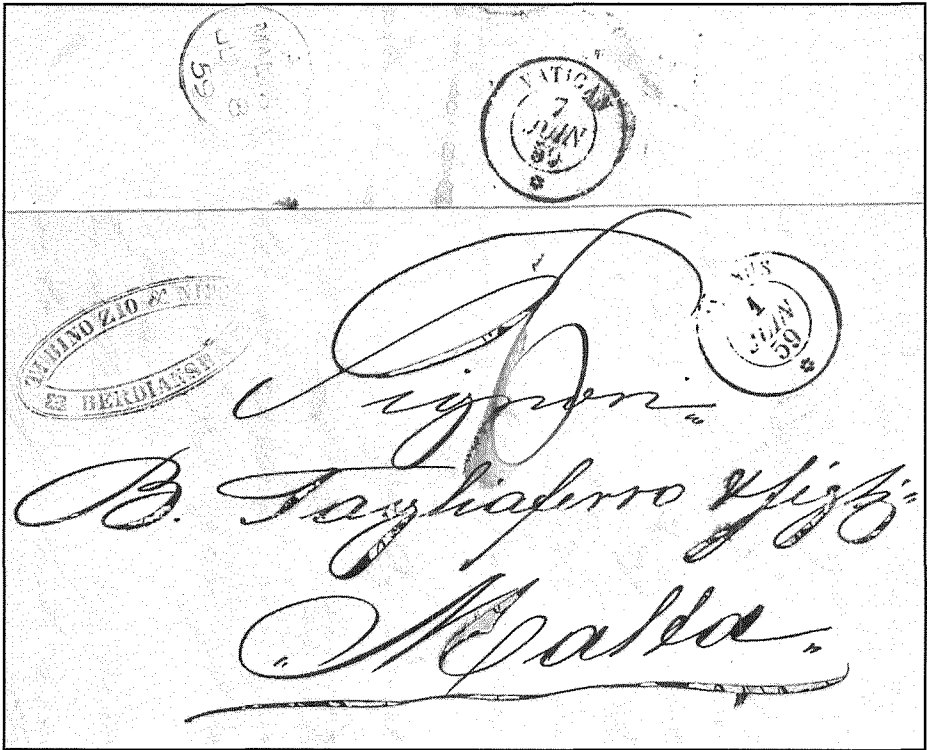 MALTA
JU 8
59
VATICAN
7
JUIN
59
1
JUIN
59
TUBINO ZIO & NIP
BERDIANSK
Signori
B. Tagliaferro & figli
Malta